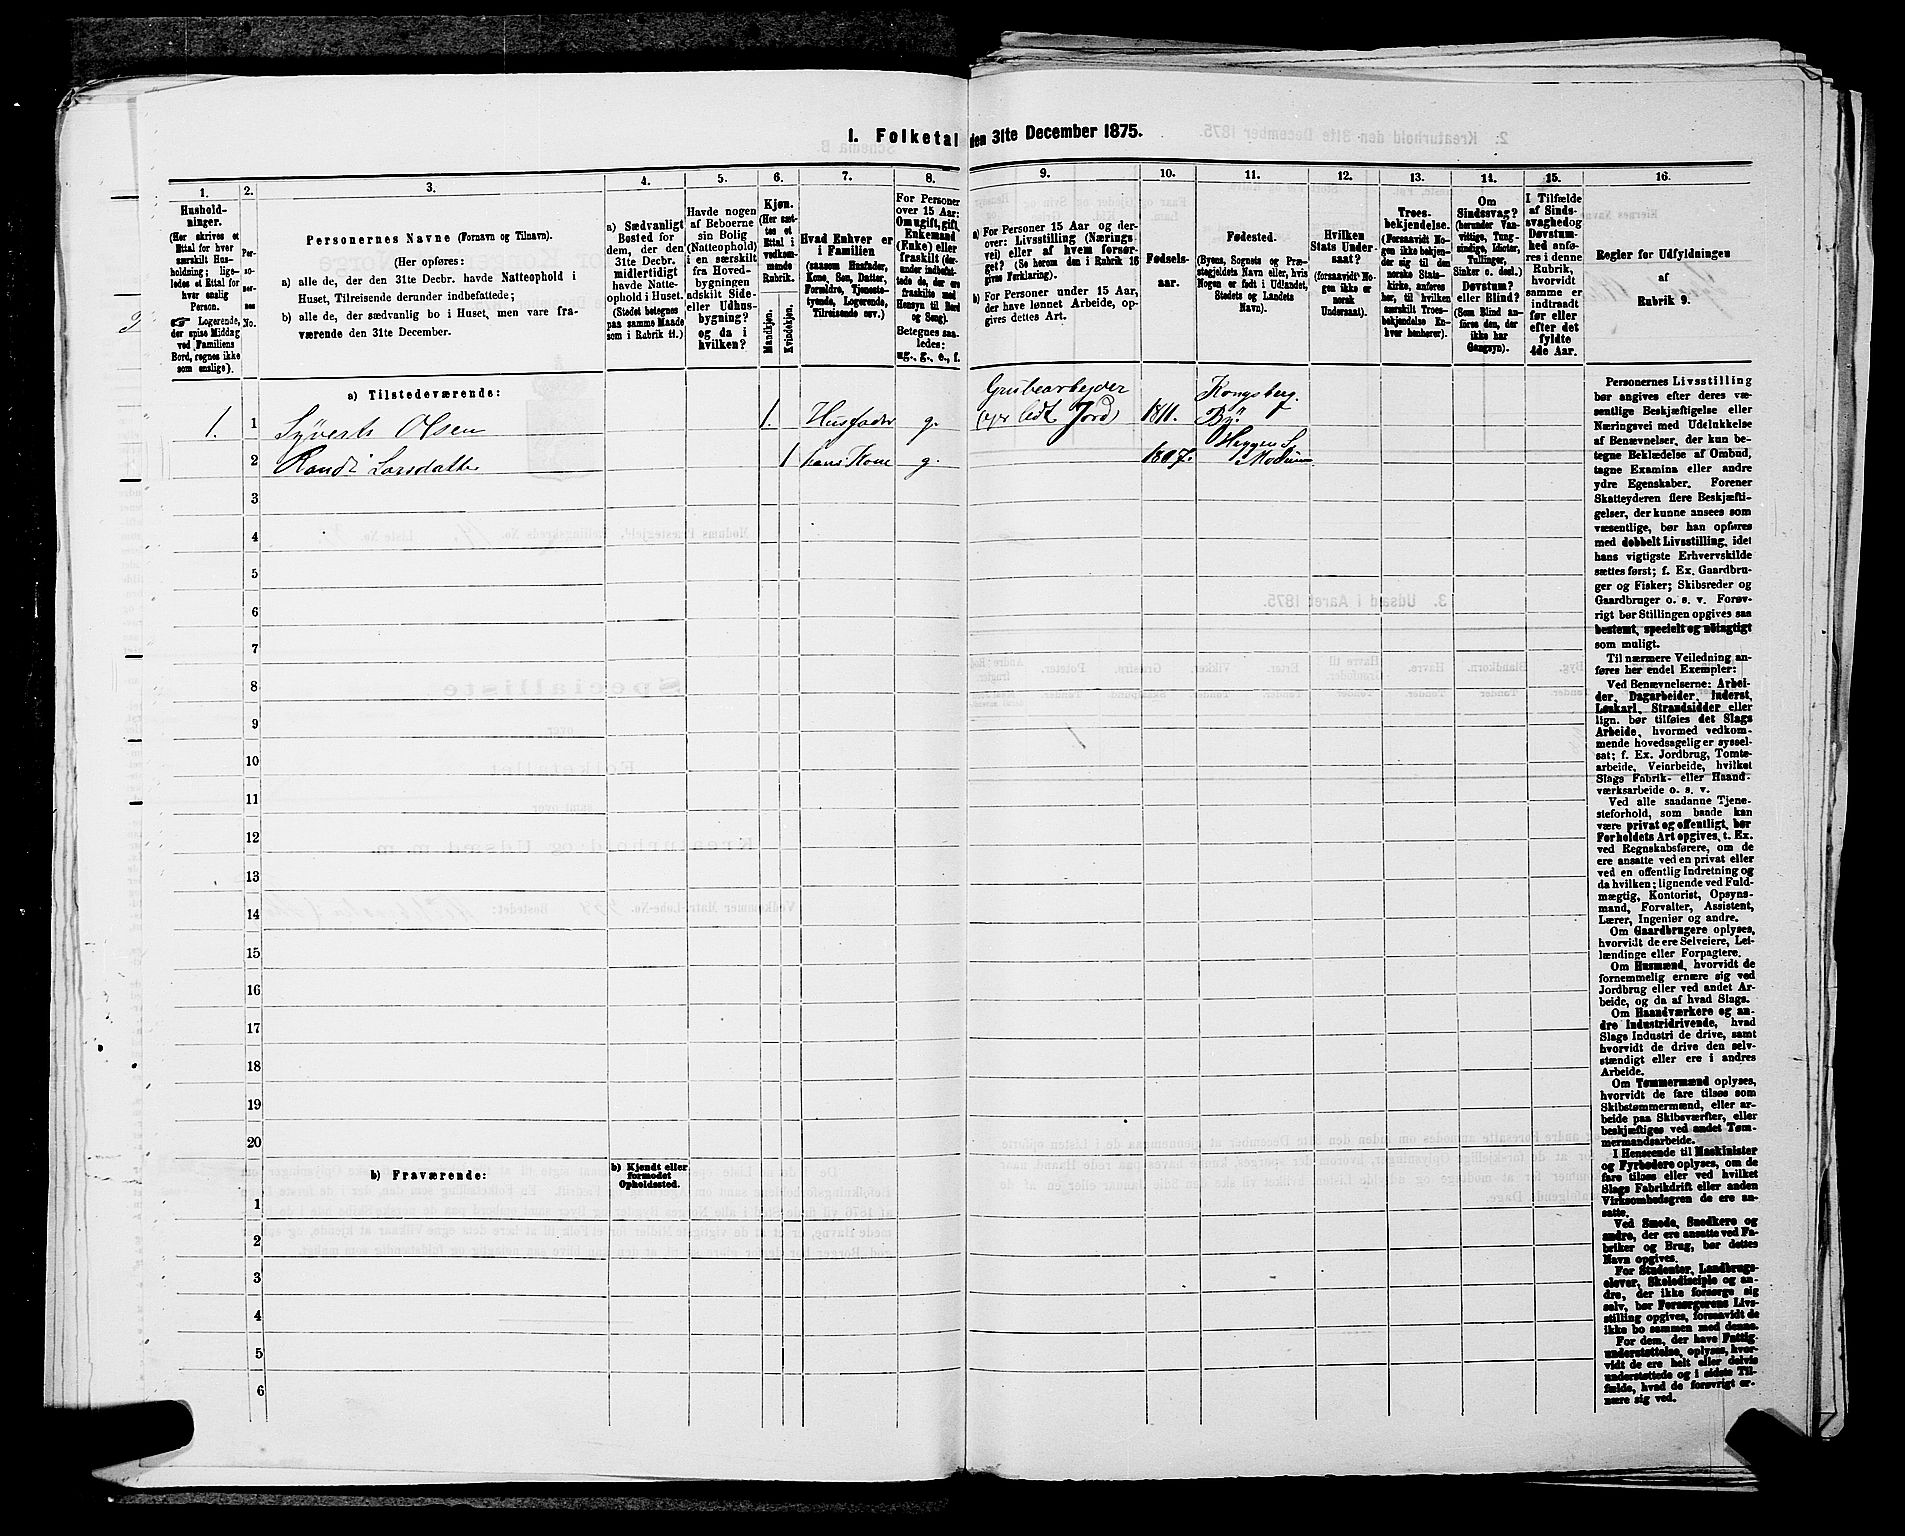 1. Folketal den 31te December 1875.
1.
2.
3.
4.
5.
6.
7.
8.
9.
10.
11.
12.
13.
14.
15.
16.
Hushold-
ninger.
(Her skrives et
Ettal for hver
særskilt Hus-
holdning; lige-
ledes et Ettal for
hver enslig
Person.
☞ Logerende,
der spise Middag
ved Familiens
Bord, regnes ikke
som enslige).
Per-
so-
ner-
nes
No.
Personernes Navne (Fornavn og Tilnavn).
(Her opføres:
a) alle de, der den 31te Decbr. havde Natteophold i
Huset, Tilreisende derunder indbefattede;
b) alle de, der sædvanlig bo i Huset, men vare fra-
værende den 31te December.
a) Sædvanligt
Bosted for
dem, der den
31te Decbr.
midlertidigt
havde Natte-
ophold i Huset.
(Stedet betegnes
paa samme Maade
som i Rubrik 11.)
Havde nogen
af Beboerne
sin Bolig
(Natteophold)
i en særskilt
fra Hoved-
bygningen
adskilt Side-
eller Udhus-
bygning?
og da i
hvilken?
Kjøn.
(Her sæt-
tes et
Ettal i
vedkom-
mende
Rubrik.
Mandkjøn.
Kvindekjøn.
Hvad Enhver er
i Familien
(saasom Husfader,
Kone, Søn, Datter,
Forældre, Tjeneste-
tyende, Logerende,
Tilreisende osv.)
For Personer
over 15 Aar:
Om ugift, gift,
Enkemand
(Enke) eller
fraskilt (der-
under indbefat-
tede de, der ere
fraskilte med
Hensyn til Bord
og Seng).
Betegnes saa-
ledes:
ug., g., e., f.
a) For Personer 15 Aar og der-
over: Livsstilling (Nærings-
vei) eller af hvem forsør-
get? (Se herom den i Rubrik 16
givne Forklaring).
b) For Personer under 15 Aar,
der have lønnet Arbeide, op-
gives dettes Art.
Fødsels-
aar.
Fødested.
(Byens, Sognets og Præ-
stegjeldets Navn eller, hvis
Nogen er født i Udlandet,
Stedets og Landets
Navn).
Hvilken
Stats Under-
saat?
(forsaavidt No-
gen ikke er
norsk
Undersaat).
Troes-
bekjendelse.
(Forsaavidt No-
gen ikke bekjen-
der sig til den
norske Stats-
kirke, anføres
her, til hvilken
særskilt Troes-
bekjendelse En-
hver henhører).
Om
Sindssvag?
(herunder Van-
vittige, Tung-
sindige, Idioter,
Tullinger,
Sinker o. desl.)
Døvstum?
eller Blind?
(Som Blind an-
føres den, der
ikke har
Gangsyn).
I Tilfælde
af Sinds-
svaghed og
Døvstum-
hed anfø-
res i denne
Rubrik,
hvorvidt
samme er
indtraadt
før eller
efter det
fyldte
4de Aar.
Regler for Udfyldningen
af
Rubrik 9.
a) Tilstedeværende:
1. 1 Syvert Olsen 1. Husfader g. Grubearbejder (og lidt Jord) 1811. Kongsberg By
2 Randi Larsdatter 1 hans Kone g. 1807. Heggen S. Modum
3
4
5
6
7
8
9
10
11
12
13
14
15
16
17
18
19
20
b) Fraværende:
b) Kjendt eller
formodet
Opholdssted.
1
2
3
4
5
6
Personernes Livsstilling
bør angives efter deres væ-
sentlige Beskjæftigelse eller
Næringsvei med Udelukkelse
af Benævnelser, der kun be-
tegne Beklædelse af Ombud,
tagne Examina eller andre
ydre Egenskaber. Forener
Skatteyderen flere Beskjæfti-
gelser, der kunne ansees som
væsentlige, bør han opføres
med dobbelt Livsstilling, idet
hans vigtigste Erhvervskilde
sættes først; f. Ex. Gaardbru-
ger og Fisker; Skibsreder og
Gaardbruger o. s. v. Forøv-
rigt bør Stillingen opgives saa
bestemt, specielt og nöiagtigt
som muligt.
Til nærmere Veiledning an-
føres her endel Exempler:
Ved Benævnelserne: Arbei-
der, Dagarbeider, Inderst,
Løskarl, Strandsidder eller
lign. bør tilføies det Slags
Arbeide, hvormed vedkom-
mende hovedsagelig er syssel-
sat; f. Ex. Jordbrug, Tomte-
arbeide, Veiarbeide, hvilket
Slags Fabrik- eller Haand-
værksarbeide o. s. v.
Ved alle saadanne Tjene-
steforhold, som baade kan
være privat og offentligt, bør
Forholdets Art opgives, t. Ex.
ved Regnskabsførere, om de
ere ansatte ved en privat eller
ved en offentlig Indretning og
da hvilken; lignende ved Fuld-
mægtig, Kontorist, Opsyns-
mand, Forvalter, Assistent,
Lærer, Ingeniør og andre.
Om Gaardbrugere oplyses,
hvorvidt de ere Selveiere, Lei-
lændinge eller Forpagtere.
Om Husmænd, hvorvidt de
fornemmelig ernære sig ved
Jordbrug eller ved andet Ar-
beide, og da af hvad Slags.
Om Haandværkere og an-
dre Industridrivende, hvad
Slags Industri de drive, samt
hvorvidt de drive den selv-
stændigt eller ere i andres
Arbeide.
Om Tømmermænd oplyses,
hvorvidt de fare tilsøs som
Skibstømmermænd, eller ar-
beide paa Skibsværfter, eller
beskjæftiges ved andet Tøm-
mermandsarbeide.
I Henseende til Maskinister
og Fyrbødere oplyses, om de
fare tilsøs eller ved hvilket
Slags Fabrikdrift eller anden
Virksomhedsgren de ere an-
satte.
Ved Smede, Snedkere og
andre, der ere ansatte ved Fa-
briker og Brug, bør dettes
Navn opgives.
For Studenter, Landbrugs-
elever, Skoledisciple og an-
dre, der ikke forsørge sig
selv, bør Forsørgerens Livs-
stilling opgives, forsaavidt de
ikke bo sammen med denne.
For dem, der have Fattig-
understøttelse, oplyses, hvor-
vidt de ere helt eller delvis
understøttede og i sidste Til-
fælde, hvad de forøvrigt er-
nære sig ved.